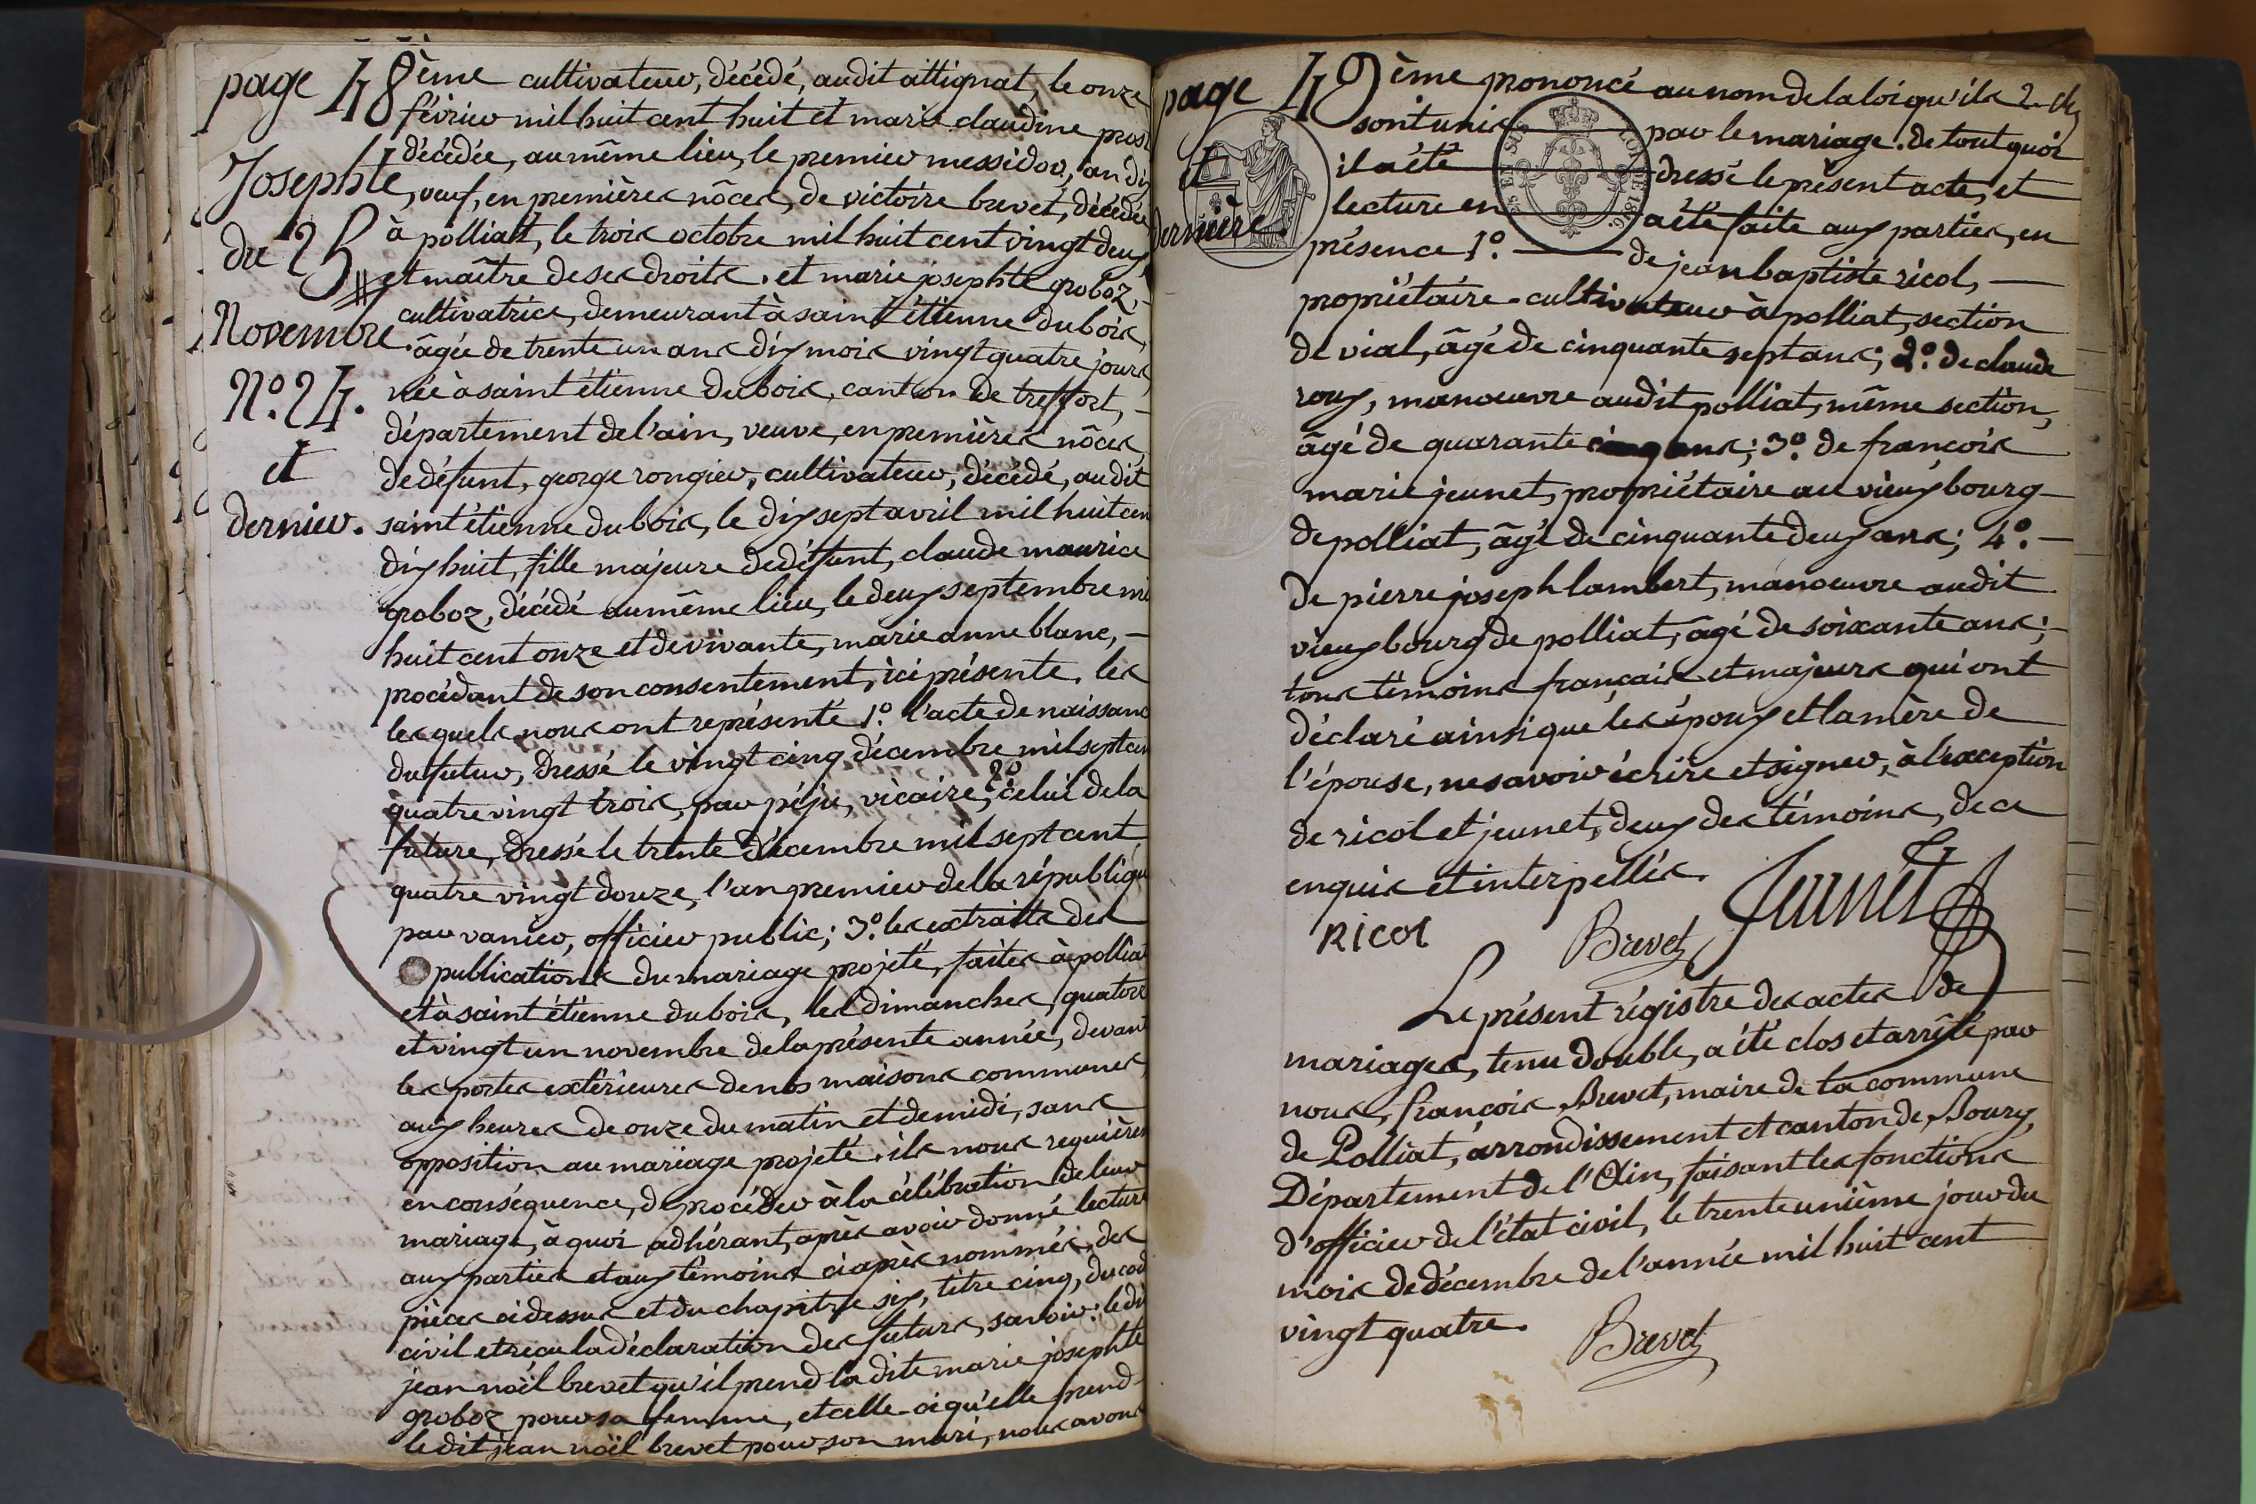 page 48ème cultivateur, décédé, audit attignat, le onze
février mil huit cent huit et marie claudine prost
décédée, au même lieu, le premier messidor, l'an dix
Josephte, veuf, en premières nôces, de victoire brevet, décédée
à polliat, le trois octobre mil huit cent vingt deux
du 25
et maître de ses droits. et marie josephte groboz,
Novembre.
cultivatrice, demeurant à saint étienne dubois,
âgée de trente un ans dix mois vingt quatre jours,
N.° 24.
née à saint étienne dubois, canton de treffort,
département de l'ain, veuve, en premières nôces,
et
de défunt, george rongier, cultivateur, décédé, audit
dernier.
saint étienne dubois, le dix sept avril mil huit cen
dix huit, fille majeure de défunt, claude maurice
groboz, décédé au même lieu, le deux septembre mil
huit cent onze et de vivante, marie anne blanc,
procédant de son consentement, ici présente. les
les quels nous ont représenté 1.° l'acte de naissanc
du futur, dressé le vingt cinq décembre mil sept cen
quatre vingt trois, par péju, vicaire; 2.° celui de la
future, dressé le trente décembre mil sept cent
quatre vingt douze, l'an premier de la républiqu
par vanier, officier public; 3.° les extraits des
publications du mariage projeté, faites à polliat
et à saint étienne dubois, les dimanches, quatorz
et vingt un novembre de la présente année, devant
les portes extérieures de nos maisons communes,
aux heures de onze du matin et de midi, sans
opposition au mariage projeté. ils nous requièren
en conséquence, de procéder à la célébration de leur
mariage, à quoi adhérant, après avoir donné lecture
aux parties et aux témoins ci après nommés, des
pièces ci dessus et du chapitre six, titre cinq, du cod
civil et reçu la déclaration des futurs, savoir: ledit
jean noël brevet qu'il prend la dite marie josephte
groboz pour sa femme, et celle-ci qu'elle prend
ledit jean noël brevet pour son mari, nous avons
page 49ème prononcé au nom de la loi qu'ils
sont unis par le mariage. de tout quoi
et
il a été dressé le présent acte, et
dernière.
lecture en a été faite aux parties, en
présence 1.° de jean baptiste ricol,
propriétaire-cultivateur à polliat, section
de vial, âgé de cinquante sept ans; 2.° de claude
roux, manoeuvre audit polliat, même section,
âgé de quarante cinq ans; 3.° de françois
marie jeunet, propriétaire au vieux bourg
de polliat, âgé de cinquante deux ans; 4.°
de pierre joseph lambert, manoeuvre audit
vieux bourg de polliat, âgé de soixante ans;
tous témoins français et majeurs qui ont
déclaré ainsi que les époux et la mère de
l'épouse, ne savoir écrire et signer, à l'exception
de ricol et jeunet, deux des témoins, de ce
enquis et interpellés.
RICOL
Brevet
Jeunet
Le présent régistre des actes de
mariages, tenu double, a été clos et arrêté par
nous, françois Brevet, maire de la commune
de Polliat, arrondissement et canton de Bourg,
Département de l'Ain, faisant les fonctions
d'officier de l'état civil, le trente unième jour du
mois de décembre de l'année mil huit cent
vingt quatre.
Brevet